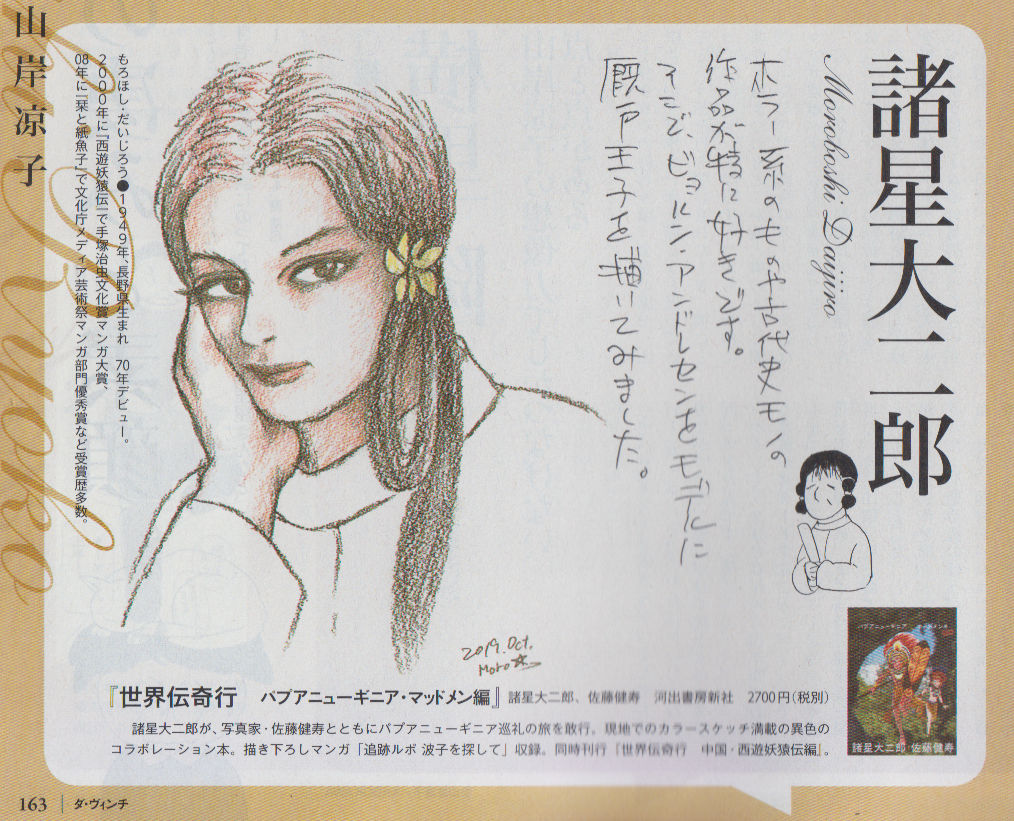 諸星大二郎
Moroboshi Daijiro
ホラー系のものや古代史モノの
作品が特に好きです。
そこで、ビョルン・アンドレセンをモデルに
厩戸王子を描いてみました。
2019.Oct.
Moro☆
もろほし・だいじろう●1949年、長野県生まれ 70年デビュー。
2000年に『西遊妖猿伝』で手塚治虫文化賞マンガ大賞、
08年に『栞と紙魚子』で文化庁メディア芸術祭マンガ部門優秀賞など受賞歴多数。
山岸凉子
Ryoko
『世界伝奇行 パプアニューギニア・マッドメン編』 諸星大二郎、佐藤健寿 河出書房新社 2700円（税別）
諸星大二郎が、写真家・佐藤健寿とともにパプアニューギニア巡礼の旅を敢行。現地でのカラースケッチ満載の異色の
コラボレーション本。描き下ろしマンガ「追跡ルポ 波子を探して」収録。同時刊行『世界伝奇行 中国・西遊妖猿伝編』。
パプアニューギニア・マッドメン編
諸星大二郎 佐藤健寿
163 | ダ・ヴィンチ